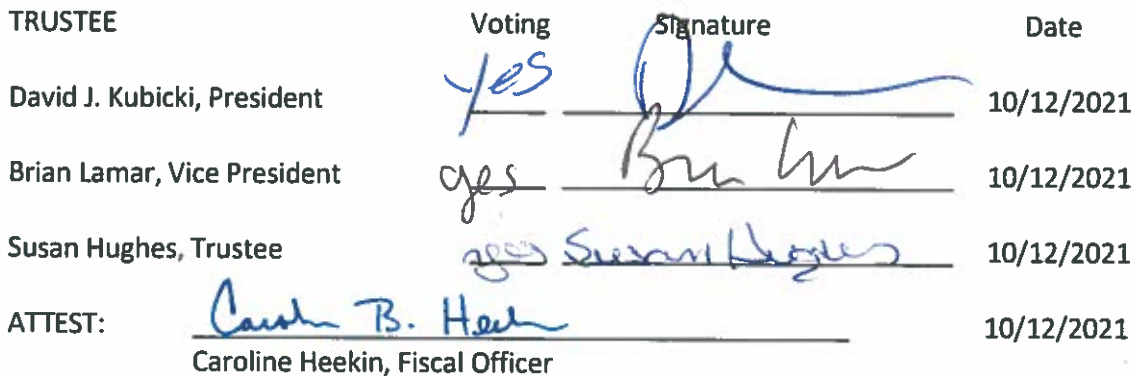 TRUSTEE Voting Signature Date
David J. Kubicki, President yes 10/12/2021
Brian Lamar, Vice President yes 10/12/2021
Susan Hughes, Trustee yes Susan Hughes 10/12/2021
ATTEST: Caroline B. Heekin 10/12/2021
Caroline Heekin, Fiscal Officer